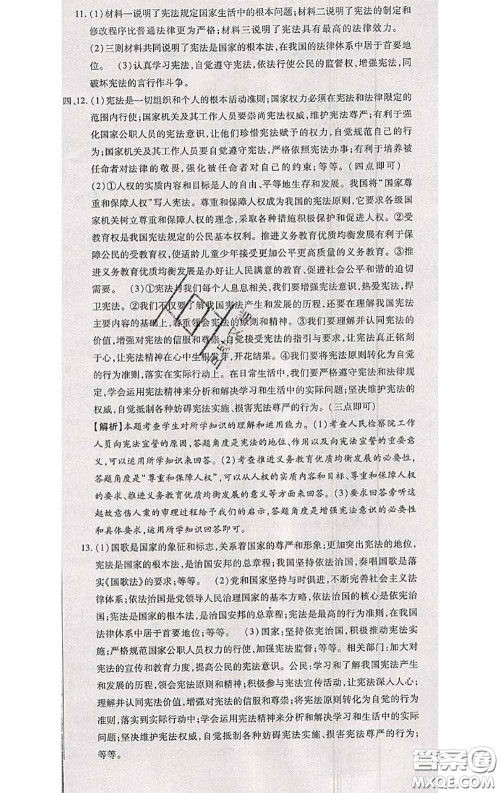 11. (1)材料一说明了宪法规定国家生活中的根本问题;材料二说明了宪法的制定和
修改程序比普通法律更为严格;材料三说明了宪法具有最高的法律效力。
(2)三则材料共同说明了宪法是国家的根本法,在我国的法律体系中居于首要地
位。 (3)认真学习宪法,自觉遵守宪法,依法行使公民的监督权,增强宪法,同
破坏宪法的言行作斗争。
四、12. (1)宪法是一切组织和个人的根本活动准则;国家权力必须在宪法和法律限定的
范围内行使;国家机关及其工作人员要崇尚宪法权威,维护宪法尊严;有利于强
化国家公职人员的宪法意识,让他们珍惜宪法赋予的权力,自觉规范自己的行
为;国家机关及其工作人员要自觉遵守宪法,严格依照宪法办事;有利于培养被
任命者对法律的敬畏,强化被任命者对自己的约束;等等。(四点即可)
(2)①人权的实质内容和目标是人的自由、平等地生存和发展。我国将“国家尊
重和保障人权”写入宪法。尊重和保障人权成为我国的宪法原则,它要求各级国
家机关树立尊重和保障人权的理念,采取各种措施积极保护和促进人权。②受
教育权是我国宪法规定的公民基本权利。推进义务教育优质均衡发展有利于保
障公民的受教育权,使适龄儿童少年接受更加公平更高质量的义务教育。③推
进义务教育优质均衡发展是办好让人民满意的教育、促进社会公平和谐的迫切
需要。 (3)①宪法与我们每个人息息相关,我们要增强宪法意识,热爱宪法,捍
卫宪法。②我们不仅要了解我国宪法产生和发展的历程,还要在理解我国宪法
主要内容的基础上,着重领会宪法的原则和精神。③我们要理解并认同宪法的
价值,增强对宪法的信服和尊崇,自觉接受宪法的指引与要求,让宪法真正铭刻
于心,让宪法精神在心中生根发芽,开花结果。④我们要将宪法原则转化为自觉
的行为准则,落实到实际行动上。在日常生活中,我们要严格遵守宪法和法律规
定,学会运用宪法精神来分析和解决学习和生活中的实际问题;坚决维护宪法的
权威,自觉抵制各种妨碍宪法实施、损害宪法尊严的行为。(三点即可)
【解析】本题考查学生对所学知识的理解和运用能力。(1)考查人民检察院工作
人员向宪法宣誓的原因,答题角度是宪法的地位、作用以及向宪法宣誓的意义要
求,可以运用所学知识来回答。(2)考查推进义务教育优质均衡发展的必要性,
答题角度是“尊重和保障人权”,可以从人权的实质内容和目标、尊重和保障人权
的要求、推进义务教育优质均衡发展的意义等方面来回答。(3)要求回答旁听这
起故意伤人案的审理过程给予我们的启示,答题角度是增强宪法意识的必要性
和具体要求,运用所学知识回答即可。
13. (1)国歌是国家的象征和标志,关系着国家的尊严和形象;更加突出宪法的地位,
宪法是国家的根本法,是治国安邦的总章程;我国坚持依宪治国,奏唱国歌是落
实《国歌法》的要求;等等。 (2)党和国家坚持与时俱进,不断完善社会主义法
律体系;依法治国是党领导人民治理国家的基本方略,依法治国的核心是依宪治
国;宪法是国家的根本法,是治国安邦的总章程;宪法是最高的行为准则,在我国
法律体系中居于首要地位。 (3)国家:坚持依宪治国,积极推动宪法实
施;严格规范国家公职人员权力的行使,加强宪法监督;等等。相关部门:加大对
宪法的宣传和教育力度,提高公民的宪法意识。公民:学习和了解我国宪法产生
和发展的历程,领会宪法原则和精神;积极参与宪法宣誓活动,让宪法深入人心;
理解并认同宪法的价值,增强对宪法的信服和尊崇;将宪法原则转化为自觉的行
为准则,落实到实际行动中;学会运用宪法精神来分析和解决学习和生活中的实
际问题;坚决维护宪法权威,自觉抵制各种妨碍宪法实施、损害宪法尊严的行为;
等等。
答案圈
MXQE.COM